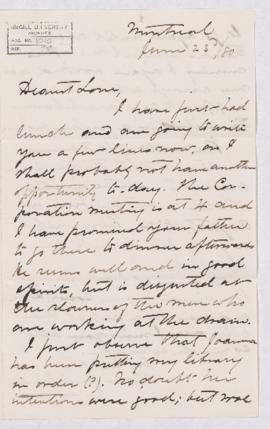 McGILL UNIVERSITY
ARCHIVES
ACC. NO.
REF.
Montreal
June 23/80
Dearest Love,
I have just had
lunch and am going to write
you a few lines now, as I
shall probably not have another
opportunity to-day. The Cor-
poration meeting is at 4 and
I have promised your father
to go there to dinner afterwards
He seems well and in good
spirits, but is disgusted at
the slowness of the men who
are working at the drain.
I just observe that Joanna
has been putting my library
in order (?). No doubt her
intentions were good; but woe